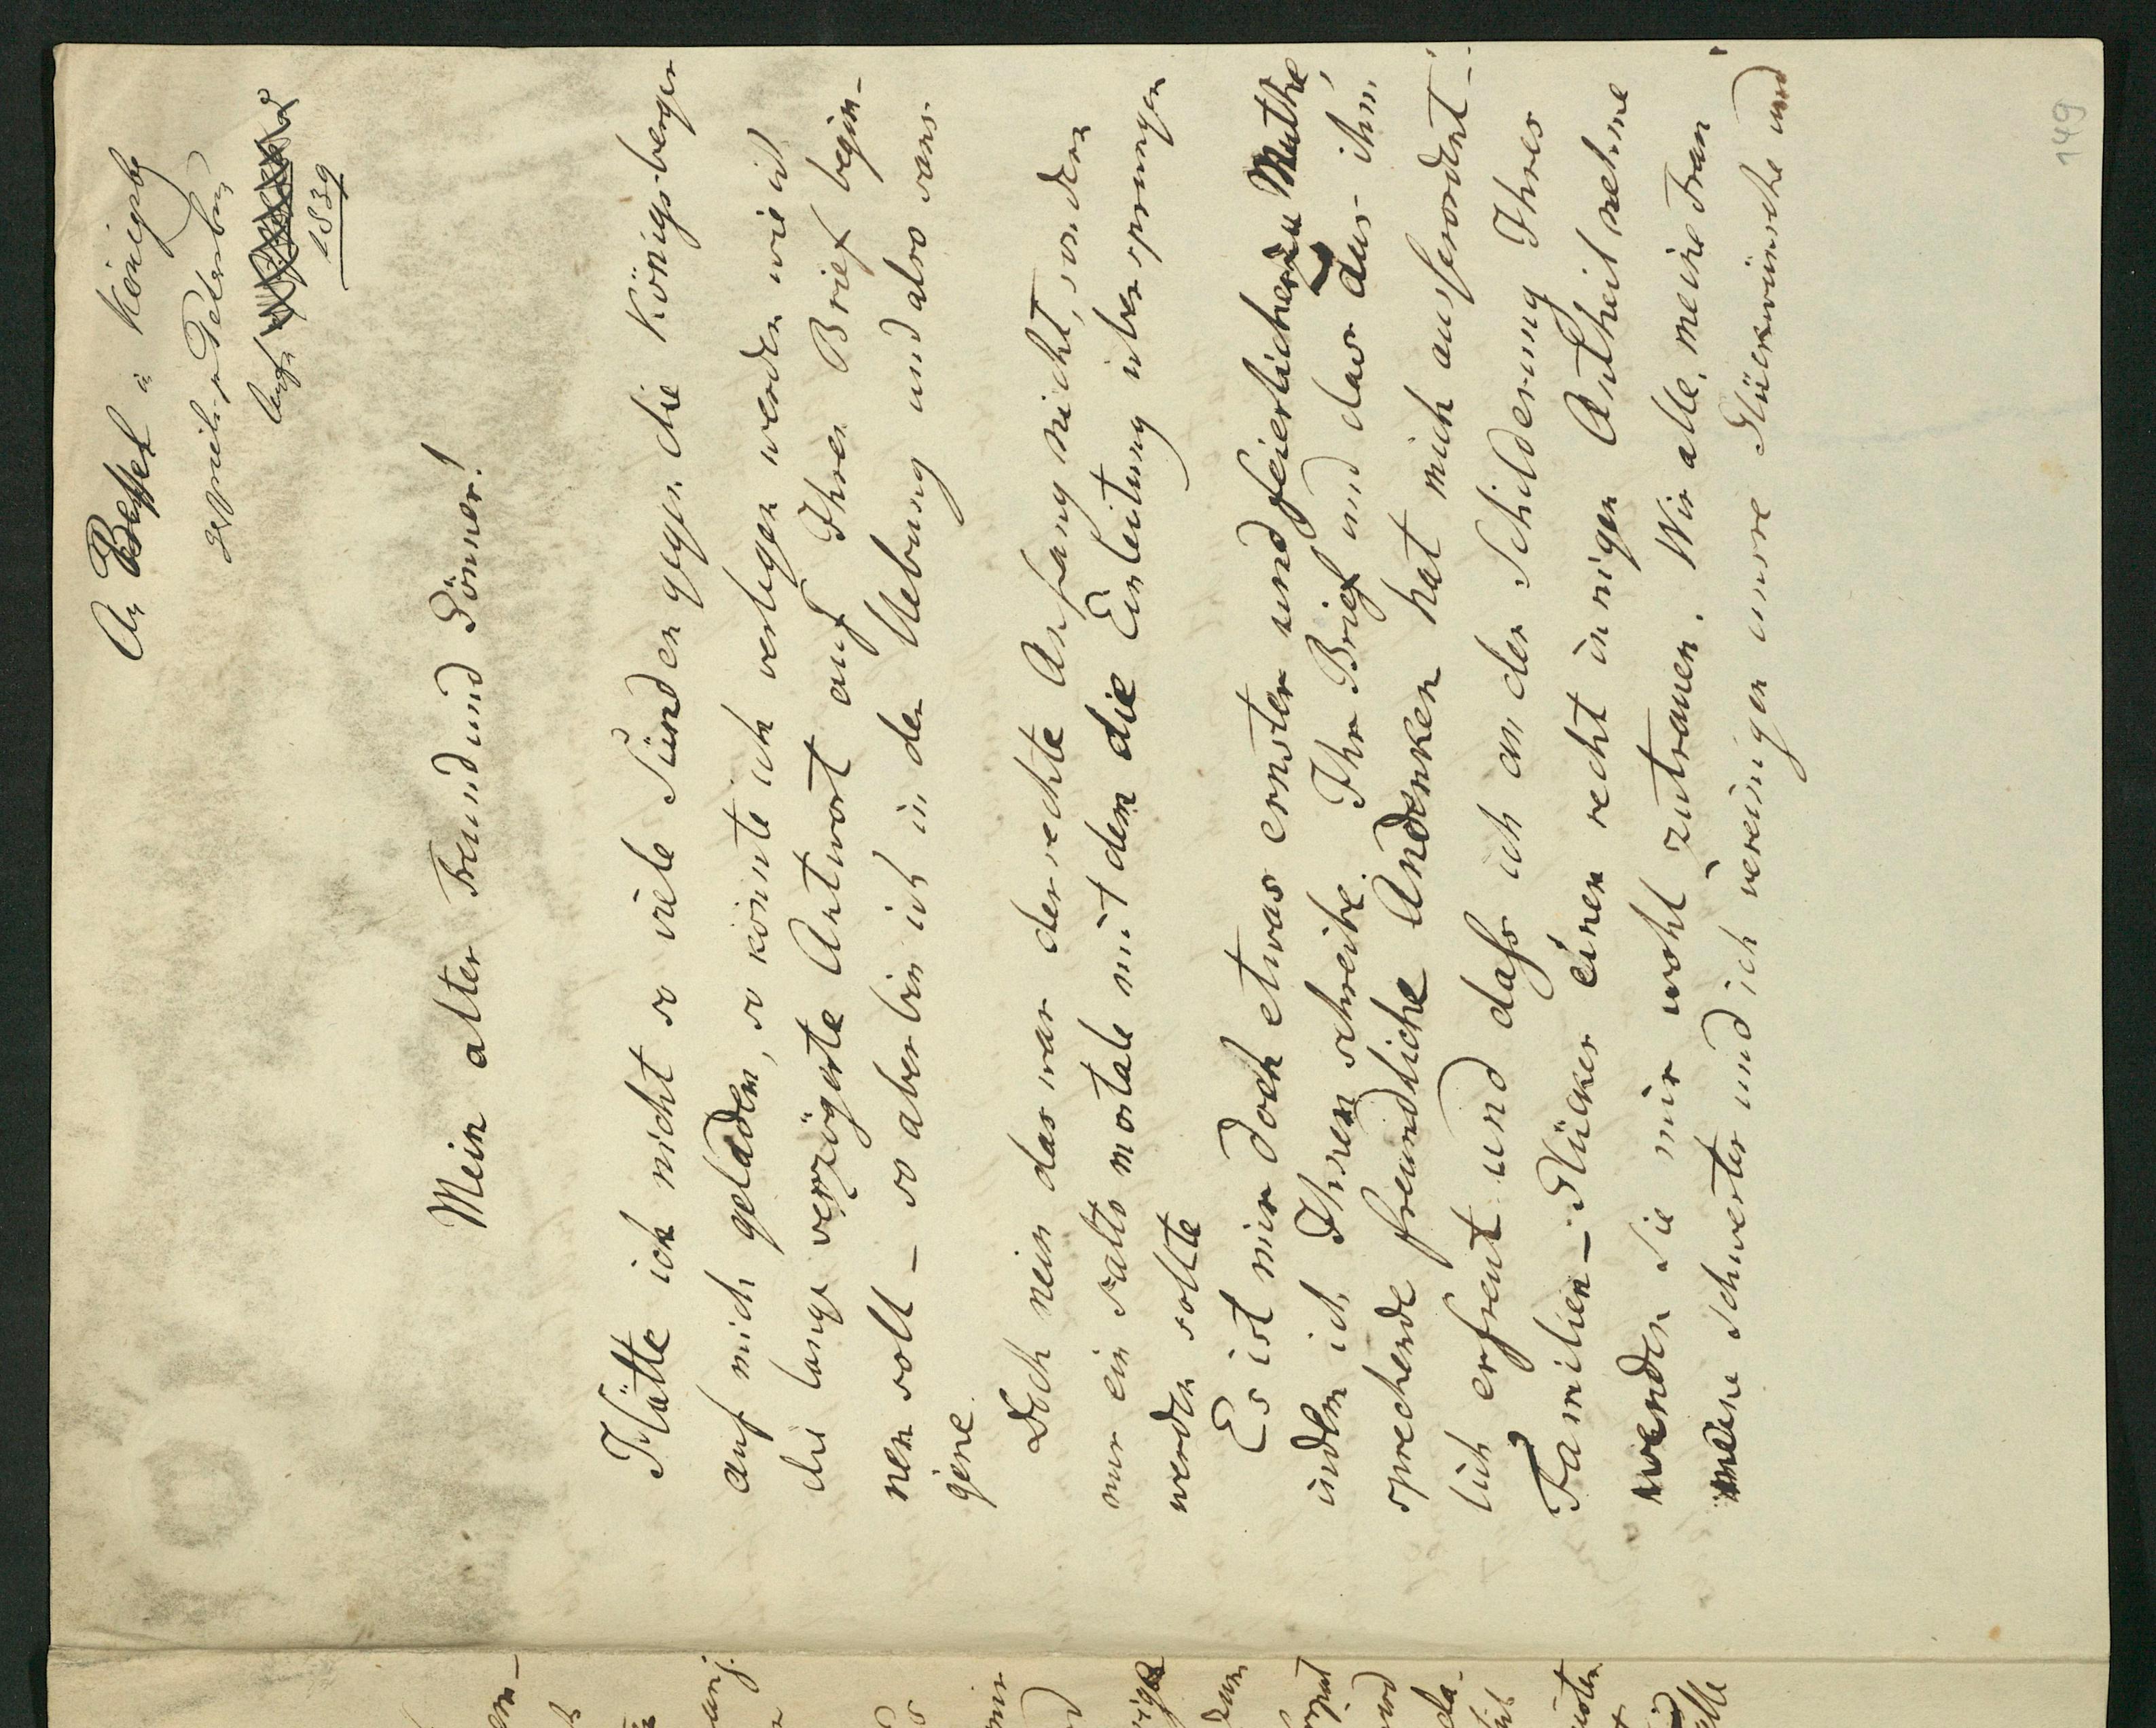 An Bessel in Königsbg
1839
Mein alter Freund und Gönner!
Hätte ich nicht so viele Sünden gegen die Königsberger
auf mich geladen, so könnte ich verlegen werden wie ich
die lange verzögerte Antwort auf Ihren Brief begin-
nen soll – so aber bin ich in der Uebung und also sans
gêne.
Doch nein das war der rechte Anfang nicht, sondern
nur ein salto mortale mit dem die Einleitung übersprungen
werden sollte
Es ist mir doch etwas ernster und feierlicher zu Muthe,
indem ich Ihnen schreibe. Ihr Brief und das aus ihm
sprechende freundliche Andenken hat mich ausserordent-
lich erfreut und dass ich an der Schilderung Ihres
Familien-Glückes einen recht innigen Antheil nehme
werden Sie mir wohl zutrauen. Wir alle, meine Frau
meine Schwester und ich vereinigen unsre Glückwünsche und
149